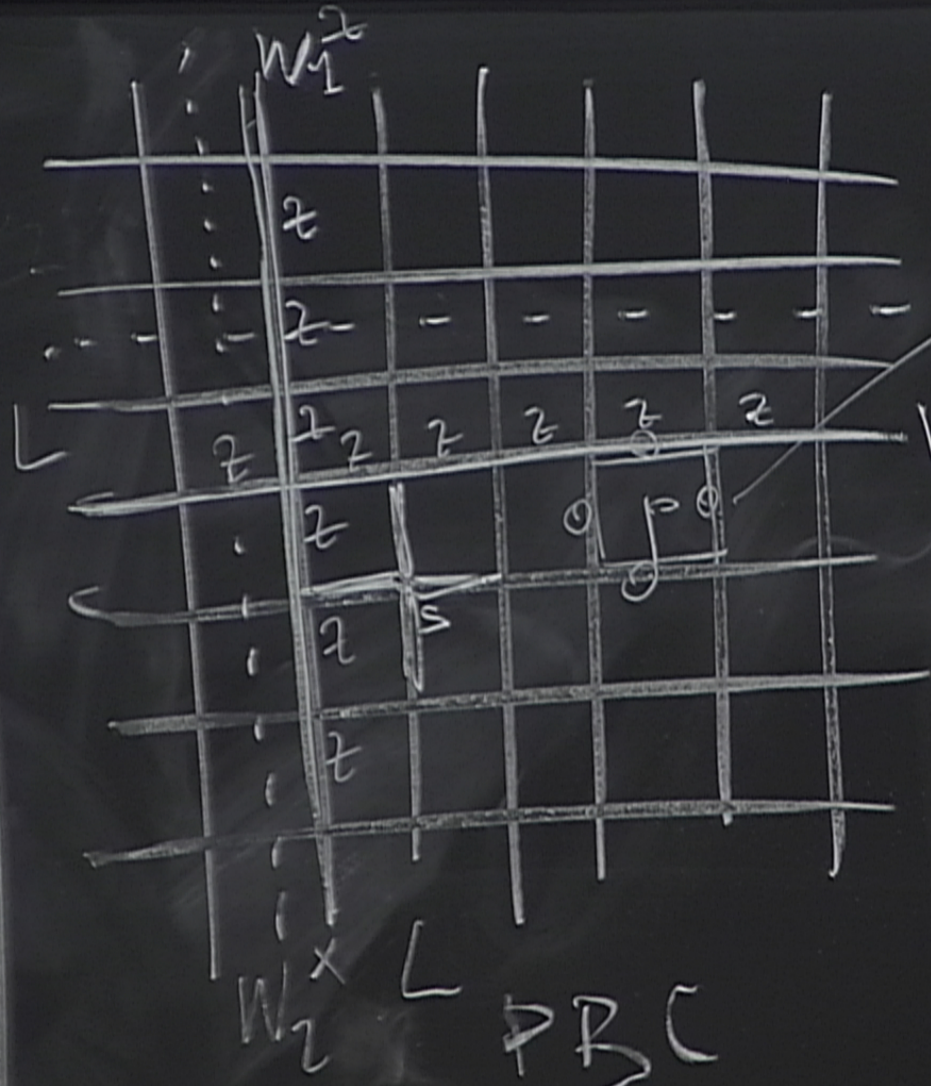 W₁ᶻ
z
z
L
z z z z z z z
z
p
s
z
z
W₂ˣ L
PBC